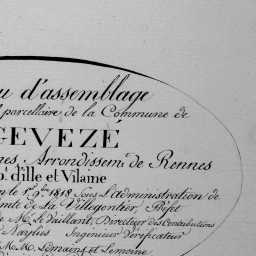 u d'assemblage
parcellaire de la Commune de
GEVEZÉ
nes, Arrondissem.t de Rennes
d'Ille et Vilaine
le 1.er 9.bre 1818 Sous L'administration de
de La Villegontier, Préfet
de M. Le Vaillant, Directeur des Contributions
Ingénieur Vérificateur
M.M. Lemoine